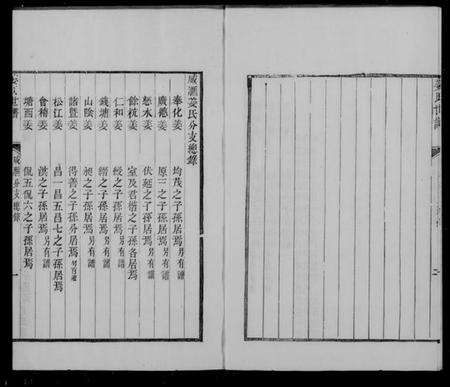 姜氏世譜
二
咸淛姜氏分支總錄
奉化姜 均茂之子孫居焉另有譜
廣德姜 原三之子孫居焉另有譜
慈水姜 伏延之子孫居焉另有譜
餘杭姜 室及君階之子孫各居焉
仁和姜 綬之子孫居焉另有譜
錢塘姜 之子孫居焉另有譜
山陰姜 之子孫居焉另有譜
諸暨姜 得善之子孫分居焉
松江姜 昌一昌五昌七之子孫居焉
會稽姜 之子孫居焉另有譜
塘西姜 侃五侃六之子孫居焉
姜氏世譜
咸淛分支總錄
一